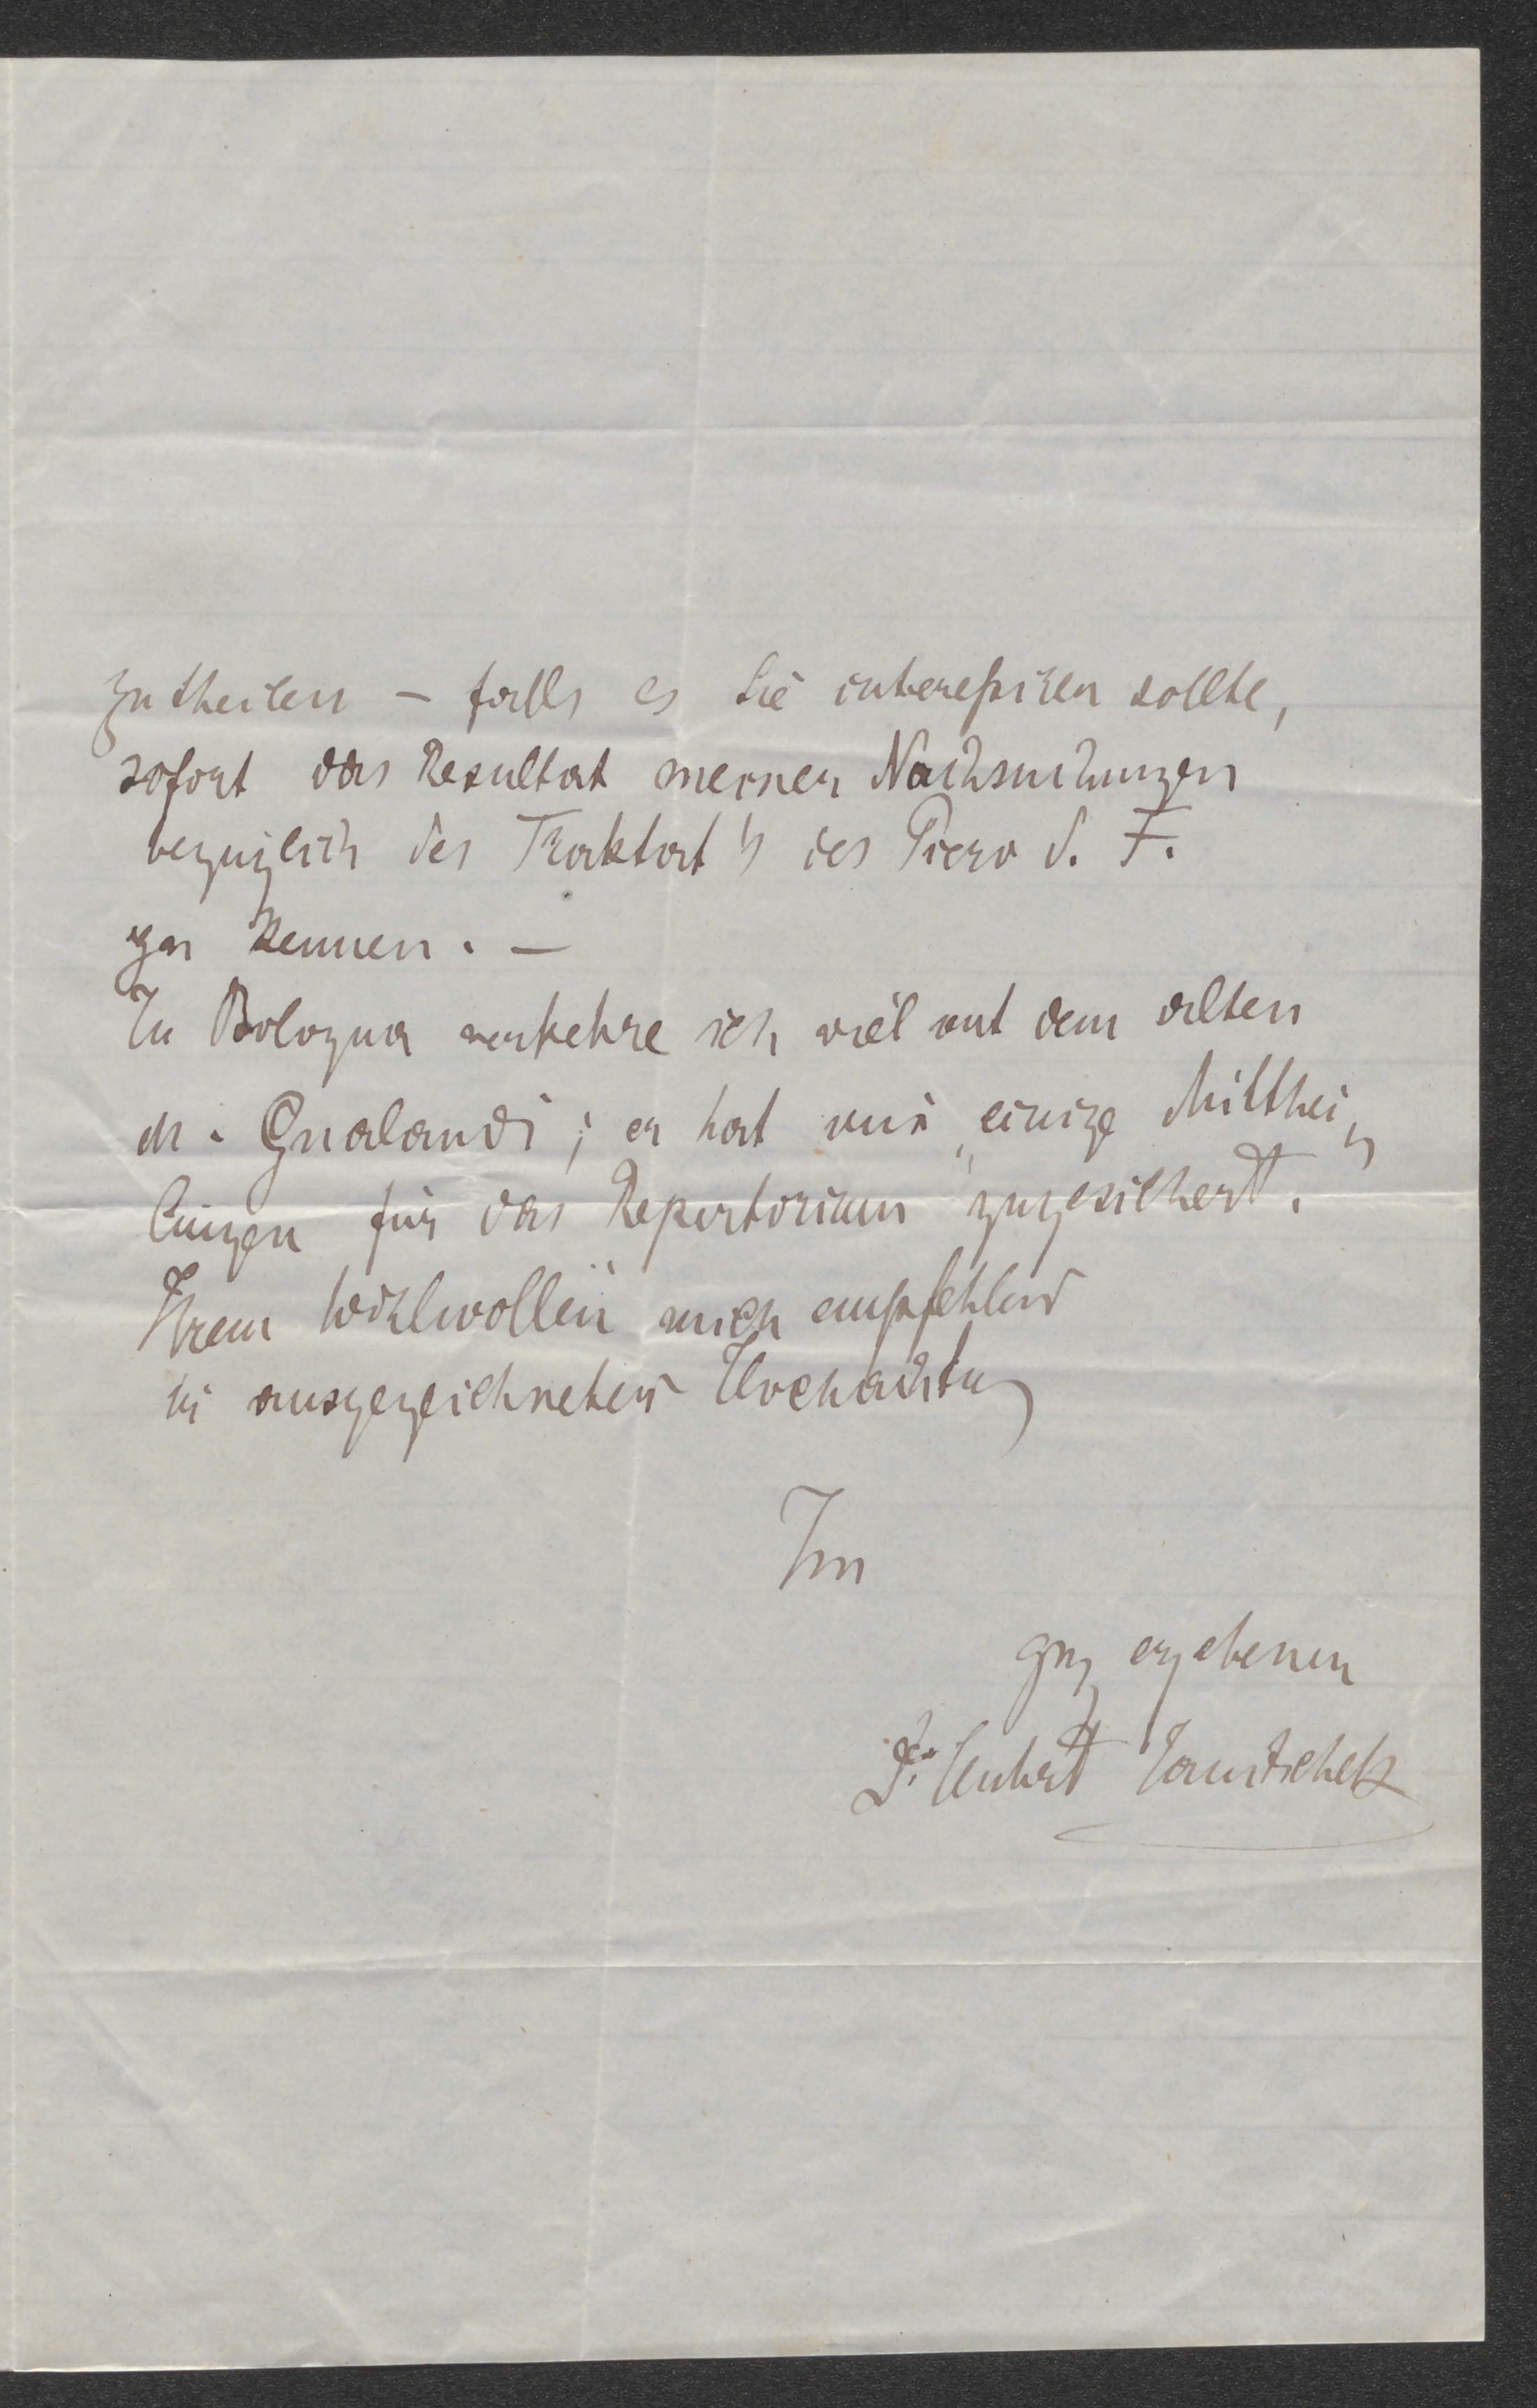 zutheilen – falls es Sie interessiren sollte,
sofort das Resultat meiner Nachsuchungen
bezüglich des Traktat's des Piero d. F.
zu kennen. –
In Bologna verkehre ich viel mit dem alten
M. Gualandi; er hat mir „einige Mitthei„
lungen für das Repertorium" zugesichert.
Ihrem Wohlwollen mich empfehlend
in ausgezeichneter Hochachtung
Ihr
ganz ergebener
Dr. Hubert Janitschek